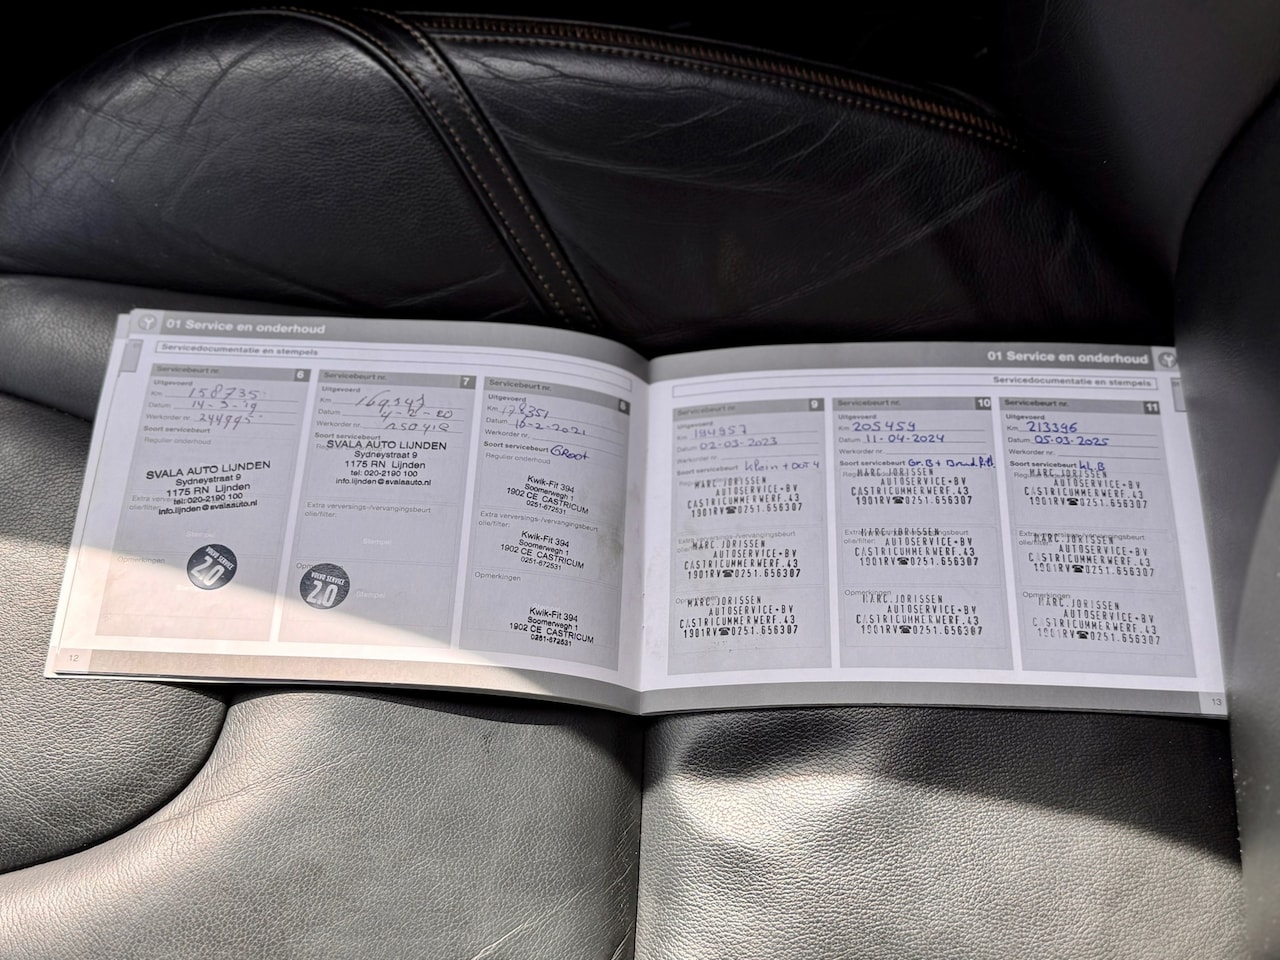 01 Service en onderhoud
Servicedocumentatie en stempels
Servicebeurt nr. 6
Uitgevoerd
Km 158735
Datum 14-3-19
Werkorder nr. 244995
Soort servicebeurt
Regulier onderhoud
SVALA AUTO LIJNDEN
Sydneystraat 9
1175 RN Lijnden
tel: 020-2190 100
info.lijnden@svalaauto.nl
Extra verversings-/vervangingsbeurt
olie/filter:
Stempel
Opmerkingen
VOLVO SERVICE
2.0
Servicebeurt nr. 7
Uitgevoerd
Km
Datum 4-2-20
Werkorder nr.
Soort servicebeurt
SVALA AUTO LIJNDEN
Sydneystraat 9
1175 RN Lijnden
tel: 020-2190 100
info.lijnden@svalaauto.nl
Extra verversings-/vervangingsbeurt
olie/filter:
Stempel
VOLVO SERVICE
2.0
Stempel
12
Servicebeurt nr. 8
Uitgevoerd
Km 178351
Datum 16-2-2021
Werkorder nr.
Soort servicebeurt Groot
Regulier onderhoud
Kwik-Fit 394
Soomerwegh 1
1902 CE CASTRICUM
0251-672531
Extra verversings-/vervangingsbeurt
olie/filter:
Kwik-Fit 394
Soomerwegh 1
1902 CE CASTRICUM
0251-672531
Opmerkingen
Kwik-Fit 394
Soomerwegh 1
1902 CE CASTRICUM
0251-672531
01 Service en onderhoud
Servicedocumentatie en stempels
Servicebeurt nr. 9
Uitgevoerd
Km 194957
Datum 02-03-2023
Werkorder nr.
Soort servicebeurt Klein + DOT 4
MARC JORISSEN
AUTOSERVICE•BV
CASTRICUMMERWERF.43
1901RV☎0251.656307
MARC JORISSEN
AUTOSERVICE•BV
CASTRICUMMERWERF.43
1901RV☎0251.656307
MARC.JORISSEN
AUTOSERVICE•BV
CASTRICUMMERWERF.43
1901RV☎0251.656307
Servicebeurt nr. 10
Uitgevoerd
Km 205459
Datum 11-04-2024
Werkorder nr.
Soort servicebeurt Gr.B + Brand.filt.
MARC.JORISSEN
AUTOSERVICE•BV
CASTRICUMMERWERF.43
1901RV☎0251.656307
MARC.JORISSEN
AUTOSERVICE•BV
CASTRICUMMERWERF.43
1901RV☎0251.656307
MARC.JORISSEN
AUTOSERVICE•BV
CASTRICUMMERWERF.43
1901RV☎0251.656307
Servicebeurt nr. 11
Uitgevoerd
Km 213396
Datum 05-03-2025
Werkorder nr.
Soort servicebeurt kl.B
MARC.JORISSEN
AUTOSERVICE•BV
CASTRICUMMERWERF.43
1901RV☎0251.656307
MARC.JORISSEN
AUTOSERVICE•BV
CASTRICUMMERWERF.43
1901RV☎0251.656307
MARC.JORISSEN
AUTOSERVICE•BV
CASTRICUMMERWERF.43
1901RV☎0251.656307
13